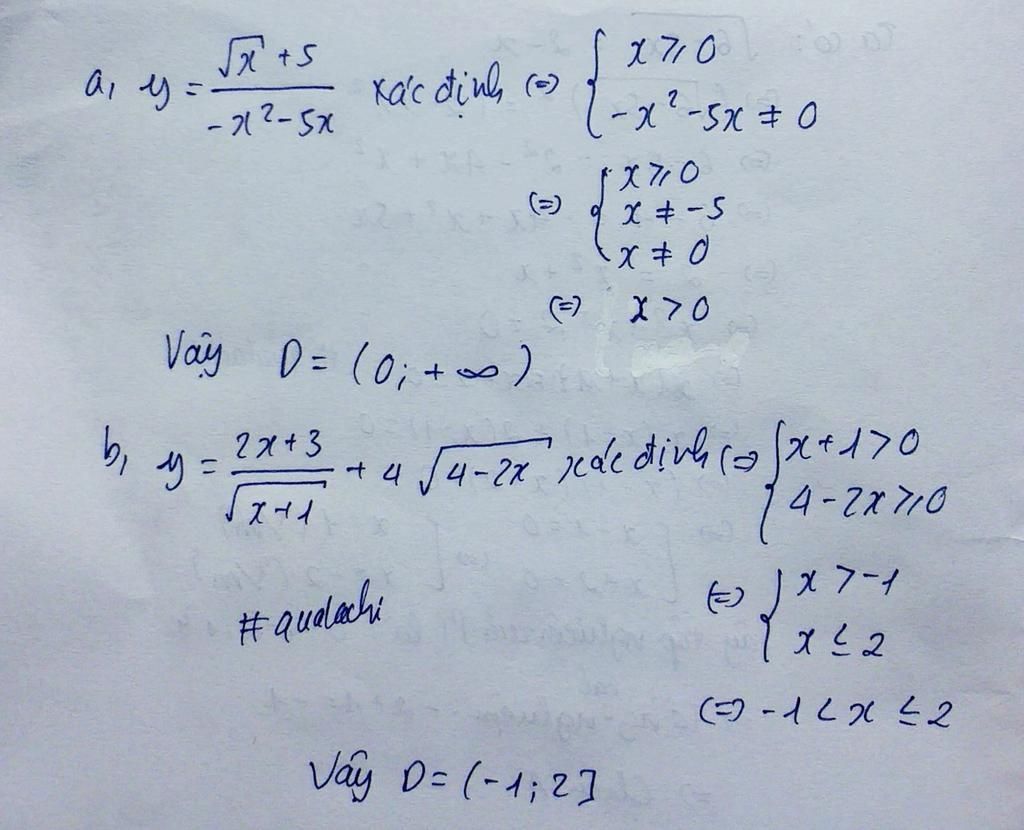 a, y = (√x + 5)/(-x² - 5x) xác định (=) { x ≥ 0
-x² - 5x ≠ 0
(=) { x ≥ 0
x ≠ -5
x ≠ 0
(=) x > 0
Vậy D = (0; +∞)
b, y = (2x+3)/√(x+1) + 4√(4-2x) xác định (=) { x+1 > 0
4-2x ≥ 0
(=) { x > -1
x ≤ 2
#qualachi
(=) -1 < x ≤ 2
Vậy D = (-1; 2]